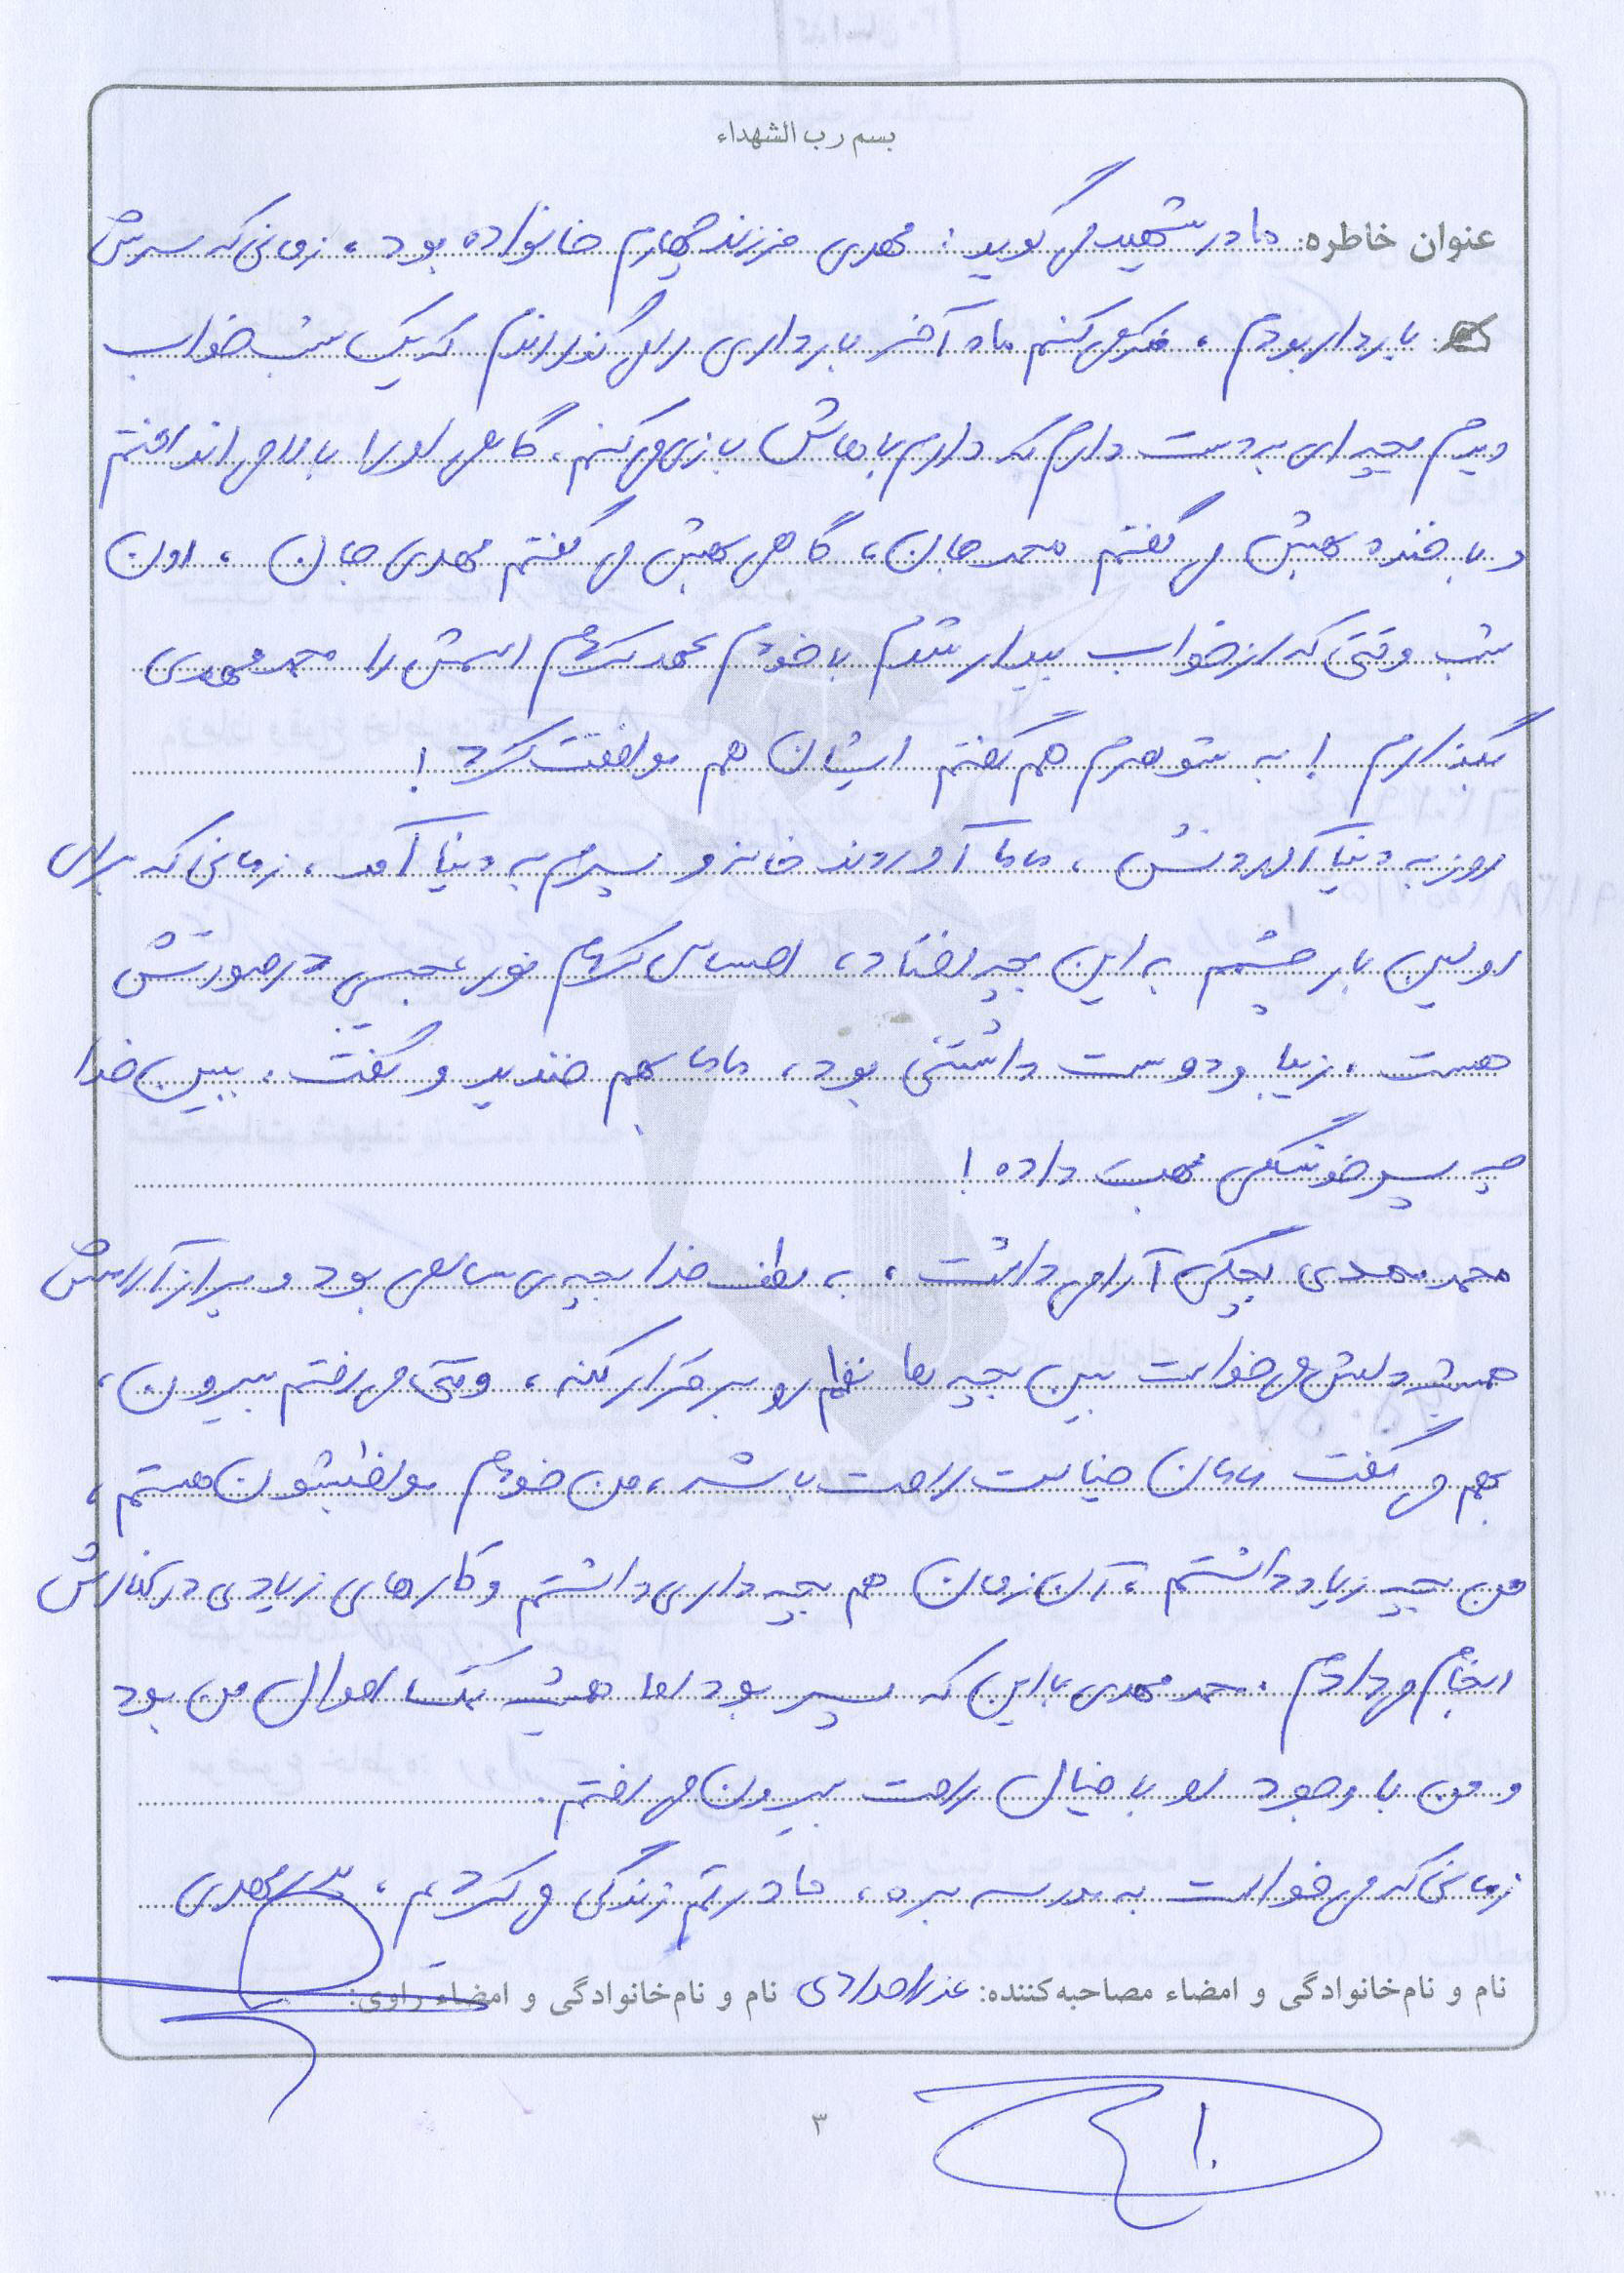 بسم رب الشهداء
عنوان خاطره: مادر شهید می گوید: مهدی فرزند چهارم خانواده بود، زمانی که سرش
باردار بودم، فکر می کنم ماه آخر بارداری را می گذراندم که یک شب خواب
دیدم بچه ای به دست دارم که دارم باهاش بازی می کنم، گاهی او را بالا می انداختم
و با خنده بهش می گفتم محمد جان، گاهی بهش می گفتم مهدی جان، اون
شب وقتی که از خواب بیدار شدم با خودم عهد کردم اسمش را محمدمهدی
بگذارم! به شوهرم هم گفتم ایشان هم موافقت کرد!
روز به دنیا آوردنش، ماما آوردند خانه و پسرم به دنیا آمد، زمانی که برای
اولین بار چشمم به این بچه افتاد، احساس کردم نور عجیبی در صورتش
هست، زیبا و دوست داشتنی بود، ماما هم خندید و گفت، ببین خدا
چه پسر خوشگلی بهت داده!
محمدمهدی بچگی آرامی داشت، به لطف خدا بچه ی سالمی بود و پر از آرامش
همیشه دلش می خواست بین بچه ها نظم رو برقرار کنه، وقتی می رفتم بیرون،
بهم می گفت مامان خیالت راحت باشه، من خودم مواظبشون هستم،
من بچه زیاد داشتم، آن زمان هم بچه داری داشتم و کارهای زیادی در کنارش
انجام می دادم. محمدمهدی با این که پسر بود اما همیشه کمک احوال من بود
و من با وجود او با خیال راحت بیرون می رفتم.
زمانی که می خواست به مدرسه بره، ما در قم زندگی می کردیم، محمدمهدی
نام و نام خانوادگی و امضاء مصاحبه کننده: عذرا حدادی نام و نام خانوادگی و امضاء راوی:
۳